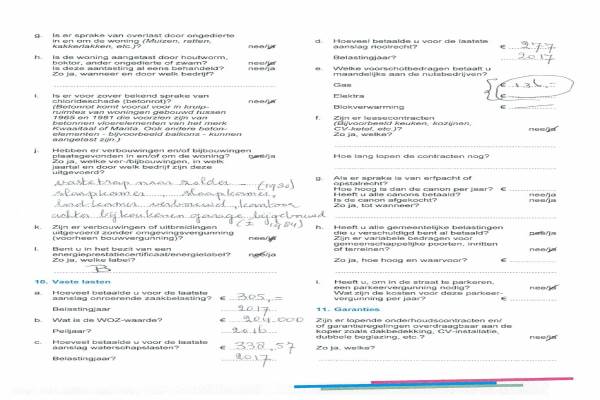 g. Is er sprake van overlast door ongedierte
in en om de woning (Muizen, ratten,
kakkerlakken, etc.)? nee/ja
h. Is de woning aangetast door houtworm,
boktor, ander ongedierte of zwam? nee/ja
Is deze aantasting al eens behandeld? nee/ja
Zo ja, wanneer en door welk bedrijf?
i. Is er voor zover bekend sprake van
chlorideschade (betonrot)? nee/ja
(Betonrot komt vooral voor in kruip-
ruimtes van woningen gebouwd tussen
1965 en 1981 die voorzien zijn van
betonnen vloerelementen van het merk
Kwaaitaal of Manta. Ook andere beton-
elementen - bijvoorbeeld balkons - kunnen
aangetast zijn.)
j. Hebben er verbouwingen en/of bijbouwingen
plaatsgevonden in en/of om de woning? nee/ja
Zo ja, welke ver-/bijbouwingen, in welk
jaartal en door welk bedrijf zijn deze
uitgevoerd?
vaste trap naar zolder - (1980)
slaapkamer slaapkamer,
badkamer verbouwd, kantoor
achter bijkeuken en garage bijgebouwd
(± 1984)
k. Zijn er verbouwingen of uitbreidingen
uitgevoerd zonder omgevingsvergunning
(voorheen bouwvergunning)? nee/ja
l. Bent u in het bezit van een
energieprestatiecertificaat/energielabel? nee/ja
Zo ja, welke label?
B
10. Vaste lasten
a. Hoeveel betaalde u voor de laatste
aanslag onroerende zaakbelasting? € 305,=
Belastingjaar 2017
b. Wat is de WOZ-waarde? € 204.000
Peiljaar? 2016
c. Hoeveel betaalde u voor de laatste
aanslag waterschapslasten? € 338,57
Belastingjaar? 2017
d. Hoeveel betaalde u voor de laatste
aanslag rioolrecht? € 277
Belastingjaar? 2017
e. Welke voorschotbedragen betaalt u
maandelijks aan de nutsbedrijven?
Gas € 136,=
Elektra €
Blokverwarming €
f. Zijn er leasecontracten
(Bijvoorbeeld keuken, kozijnen,
CV-ketel, etc.)? nee/ja
Zo ja, welke?
Hoe lang lopen de contracten nog?
g. Als er sprake is van erfpacht of
opstalrecht?
Hoe hoog is dan de canon per jaar? €
Heeft u alle canons betaald? nee/ja
Is de canon afgekocht? nee/ja
Zo ja, tot wanneer?
h. Heeft u alle gemeentelijke belastingen
die u verschuldigd bent al betaald? nee/ja
Zijn er variabele bedragen voor
gemeenschappelijke poorten, inritten
of terreinen? nee/ja
Zo ja, hoe hoog en waarvoor? €
i. Heeft u, om in de straat te parkeren,
een parkeervergunning nodig? nee/ja
Wat zijn de kosten voor deze parkeer-
vergunning per jaar? €
11. Garanties
Zijn er lopende onderhoudscontracten en/
of garantieregelingen overdraagbaar aan de
koper zoals dakbedekking, CV-installatie,
dubbele beglazing, etc.? nee/ja
Zo ja, welke?